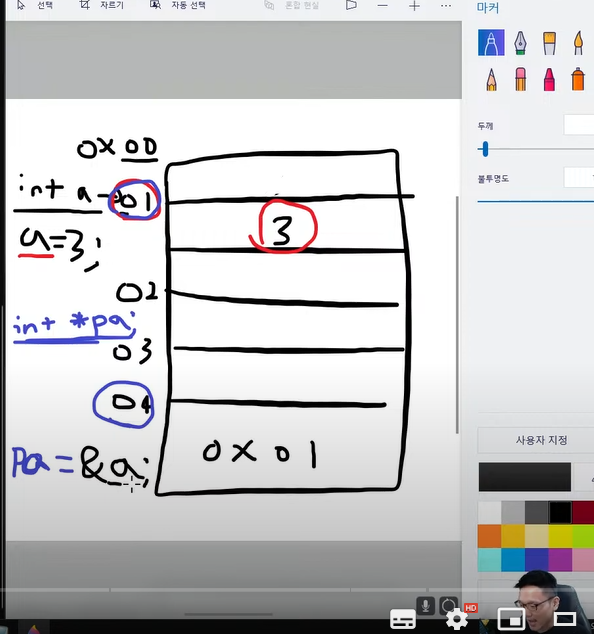 선택
자르기
자동 선택
혼합 현실
마커
두께
불투명도
사용자 지정
0x00
int a
01
a=3;
3
02
int *pa;
03
04
Pa = &a;
0x01
HD